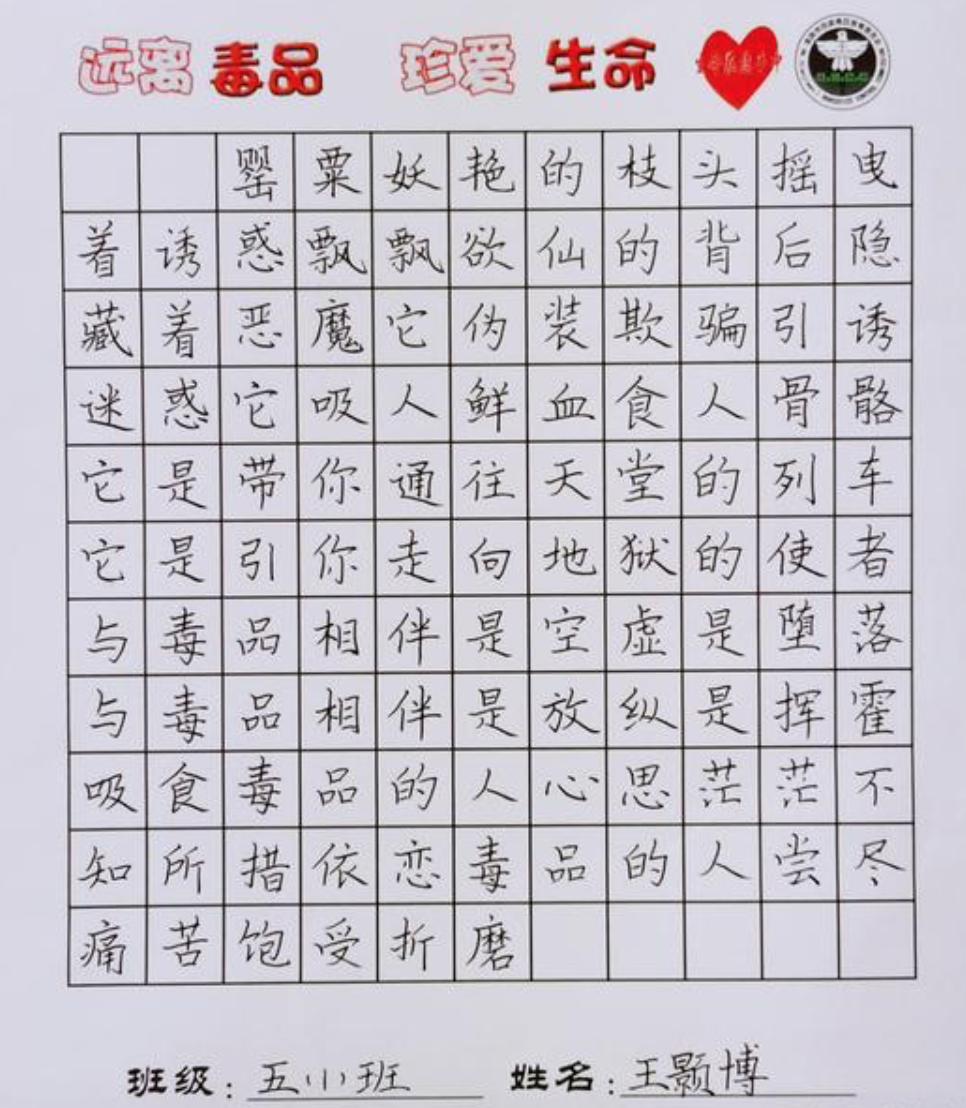 远离毒品 珍爱生命
罂粟妖艳的枝头摇曳
着诱惑飘飘欲仙的背后隐
藏着恶魔它伪装欺骗引诱
迷惑它吸人鲜血食人骨骼
它是带你通往天堂的列车
它是引你走向地狱的使者
与毒品相伴是空虚是堕落
与毒品相伴是放纵是挥霍
吸食毒品的人心思茫茫不
知所措依恋毒品的人尝尽
痛苦饱受折磨
班级：五(1)班 姓名：王颢博